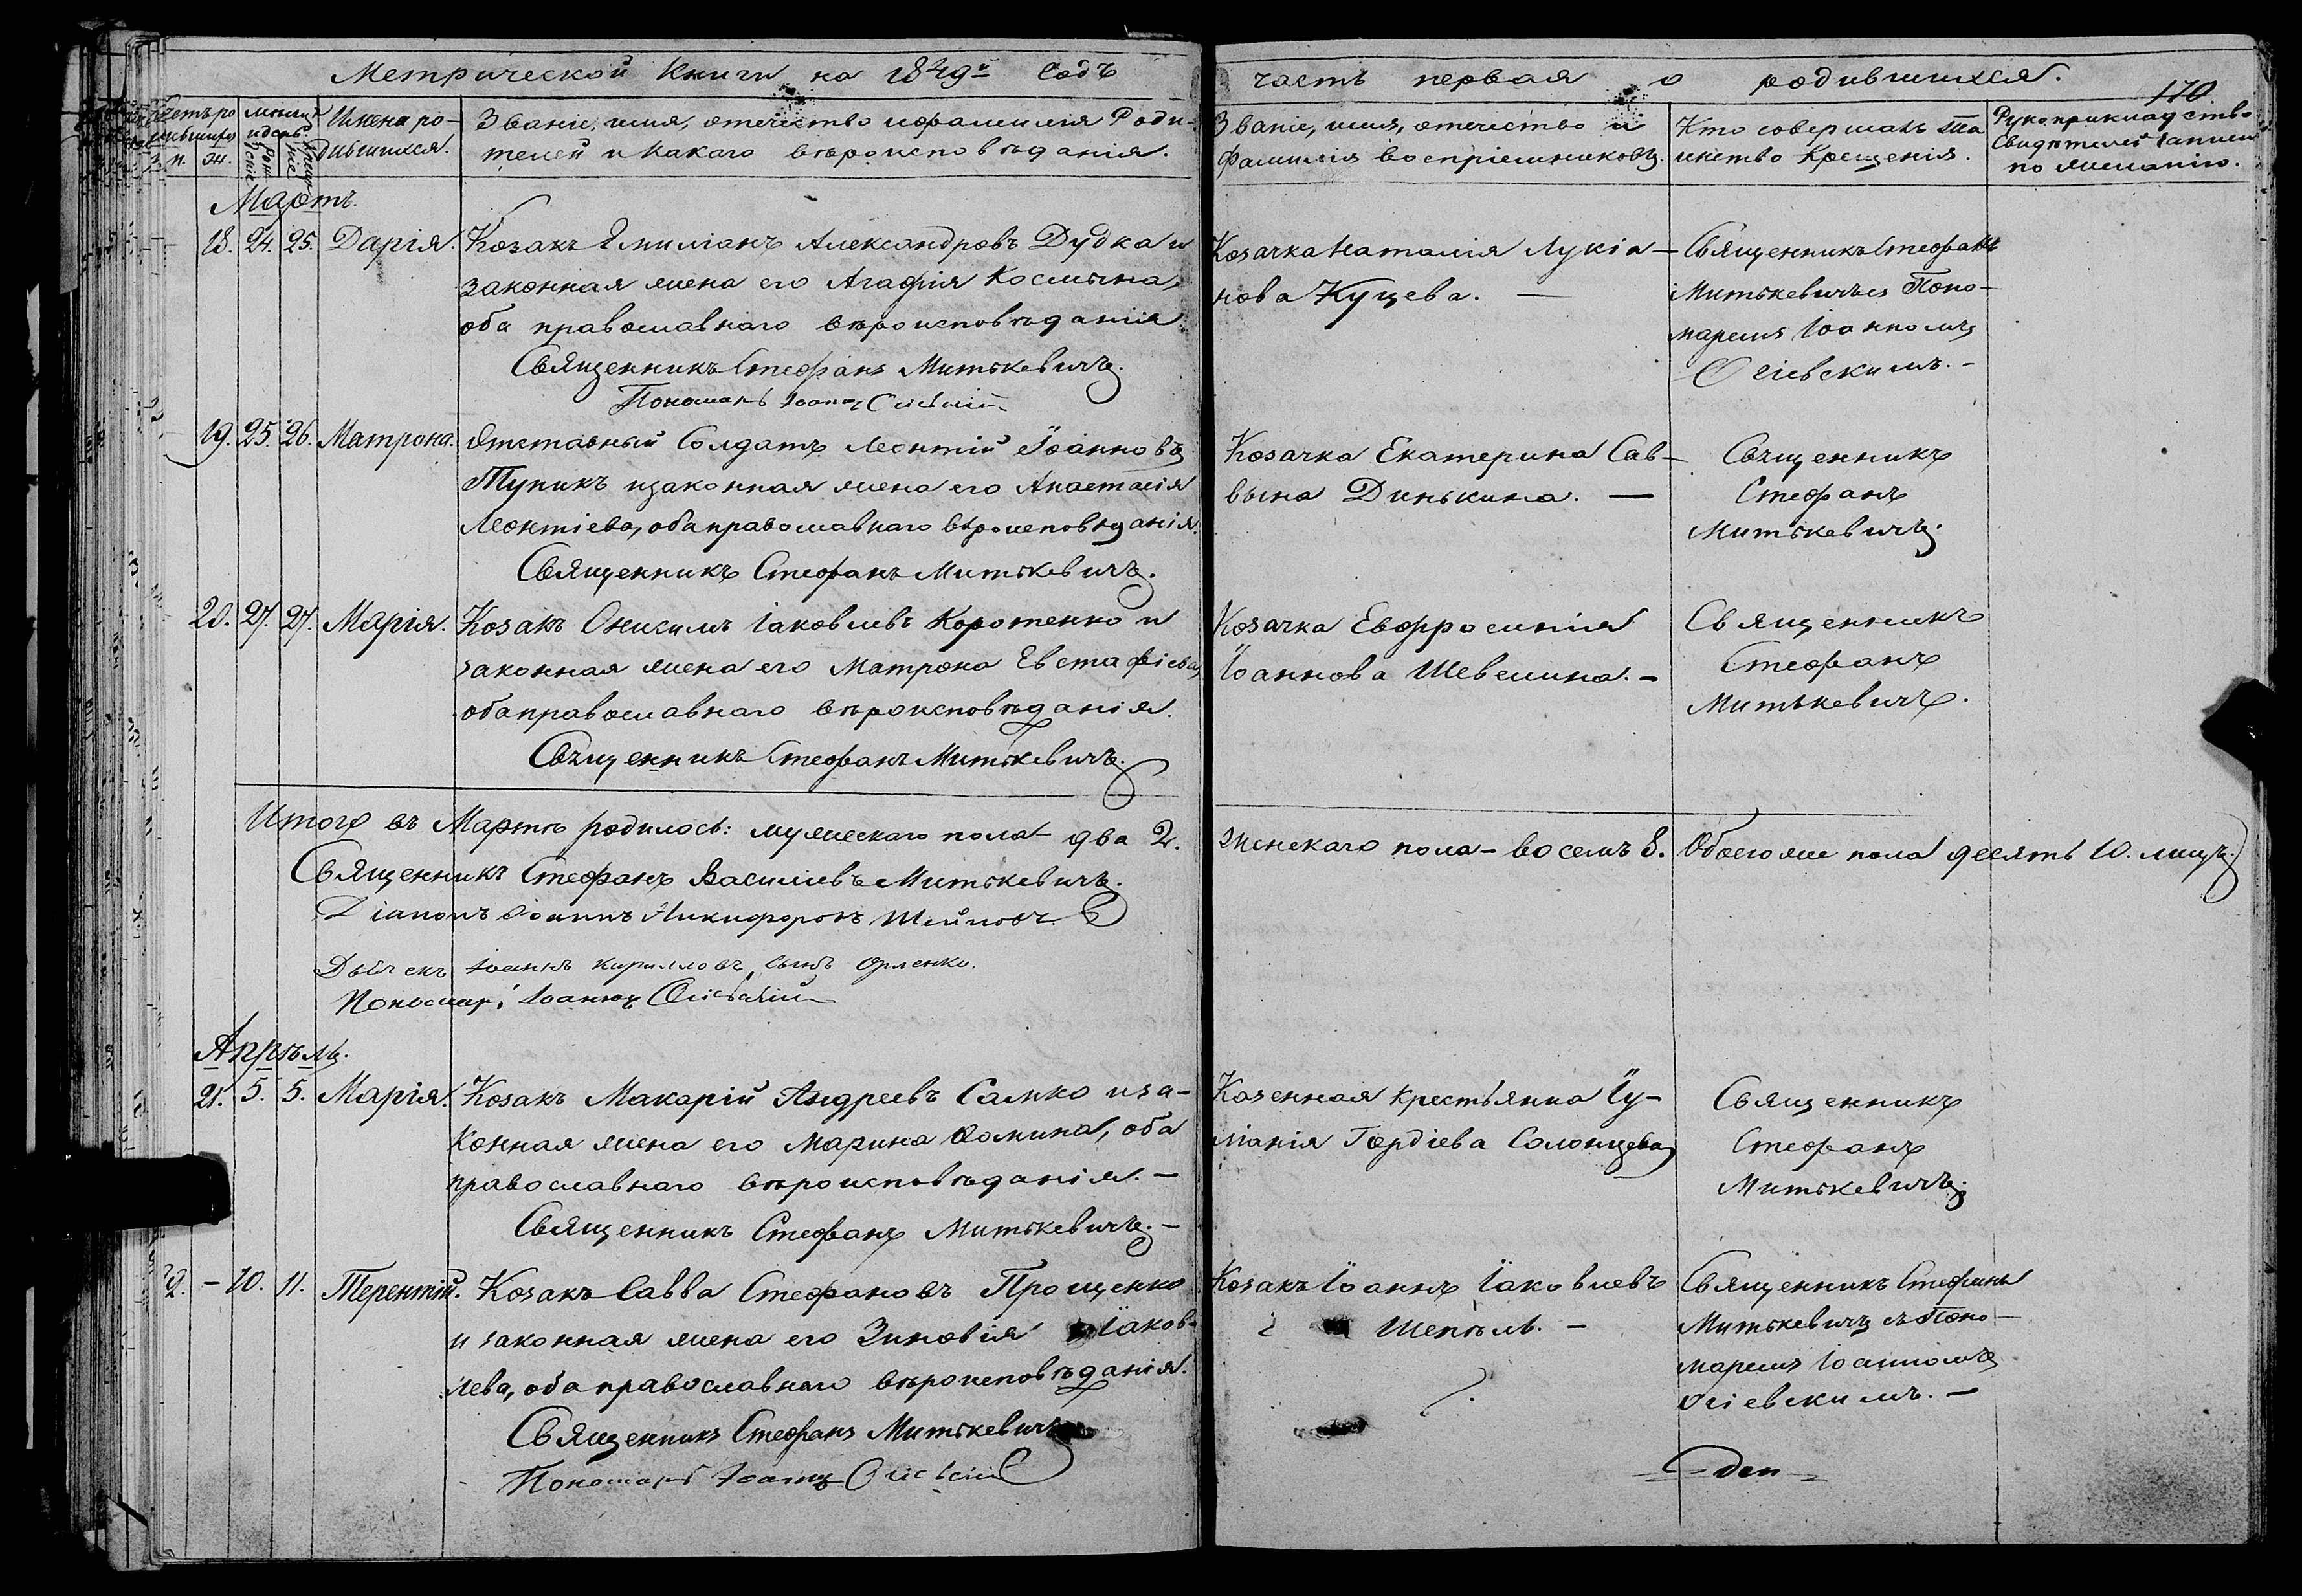 Метрической Книги на 1849й Годъ
часть первая о родившихся.
170
Имена ро-
дившихся.
Званіе, имя, отечество и фамилія Роди-
телей и какаго вѣроисповѣданія.
Званіе, имя, отечество и
фамилія воспріемниковъ.
Кто совершалъ Та
инство Крещенія.
Рукоприкладство
Свидѣтелей записи
по желанію.
Мартъ.
18. 24. 25. Дарія. Козакъ Емиліанъ Александровъ Дудка и
законная жена его Агафія Космина,
оба православнаго вѣроисповѣданія.
Священникъ Стефанъ Митькевичъ.
Пономарь Іоаннъ
Козачка Наталія Лукіа-
нова Куцева. —
Священникъ Стефанъ
Митькевичъ съ Поно-
маремъ Іоанномъ
Огіевскимъ. -
19. 25. 26. Матрона. Отставный Солдатъ Леонтій Іоанновъ
Тупикъ и законная жена его Анастасія
Леонтіева, оба православнаго вѣроисповѣданія.
Священникъ Стефанъ Митькевичъ.
Козачка Екатерина Сав-
вина Динькина. —
Священникъ
Стефанъ
Митькевичъ.
20. 27. 27. Марія. Козакъ Онисимъ Іаковлевъ Коротенко и
законная жена его Матрона Евстафіева,
оба православнаго вѣроисповѣданія.
Священникъ Стефанъ Митькевичъ.
Козачка Евфросинія
Іоаннова Шевелина. -
Священникъ
Стефанъ
Митькевичъ.
Итого въ Мартѣ родилось: мужескаго пола два 2.
женскаго пола - восемь 8. Обоего же пола десять 10. лицъ.
Священникъ Стефанъ Василіевъ Митькевичъ.
Діаконъ Іоаннъ Никифоровъ
Дьячекъ Іоаннъ Кирилловъ сынъ Орленко.
Пономарь Іоаннъ
Апрѣль.
21. 5. 5. Марія. Козакъ Макарій Андреевъ Самко и за-
конная жена его Марина Фомина, оба
православнаго вѣроисповѣданія. -
Священникъ Стефанъ Митькевичъ. -
Казенная крестьянка Іу-
ліанія Гордіева Солонцева
Священникъ
Стефанъ
Митькевичъ.
2. - 10. 11. Терентій. Козакъ Савва Стефановъ Прощенко
и законная жена его Зиновія Іаков-
лева, оба православнаго вѣроисповѣданія.
Священникъ Стефанъ Митькевичъ
Пономарь Іоаннъ
Козакъ Іоаннъ Іаковлевъ
Шепель. -
Священникъ Стефанъ
Митькевичъ съ Поно-
маремъ Іоанномъ
Огіевскимъ. -